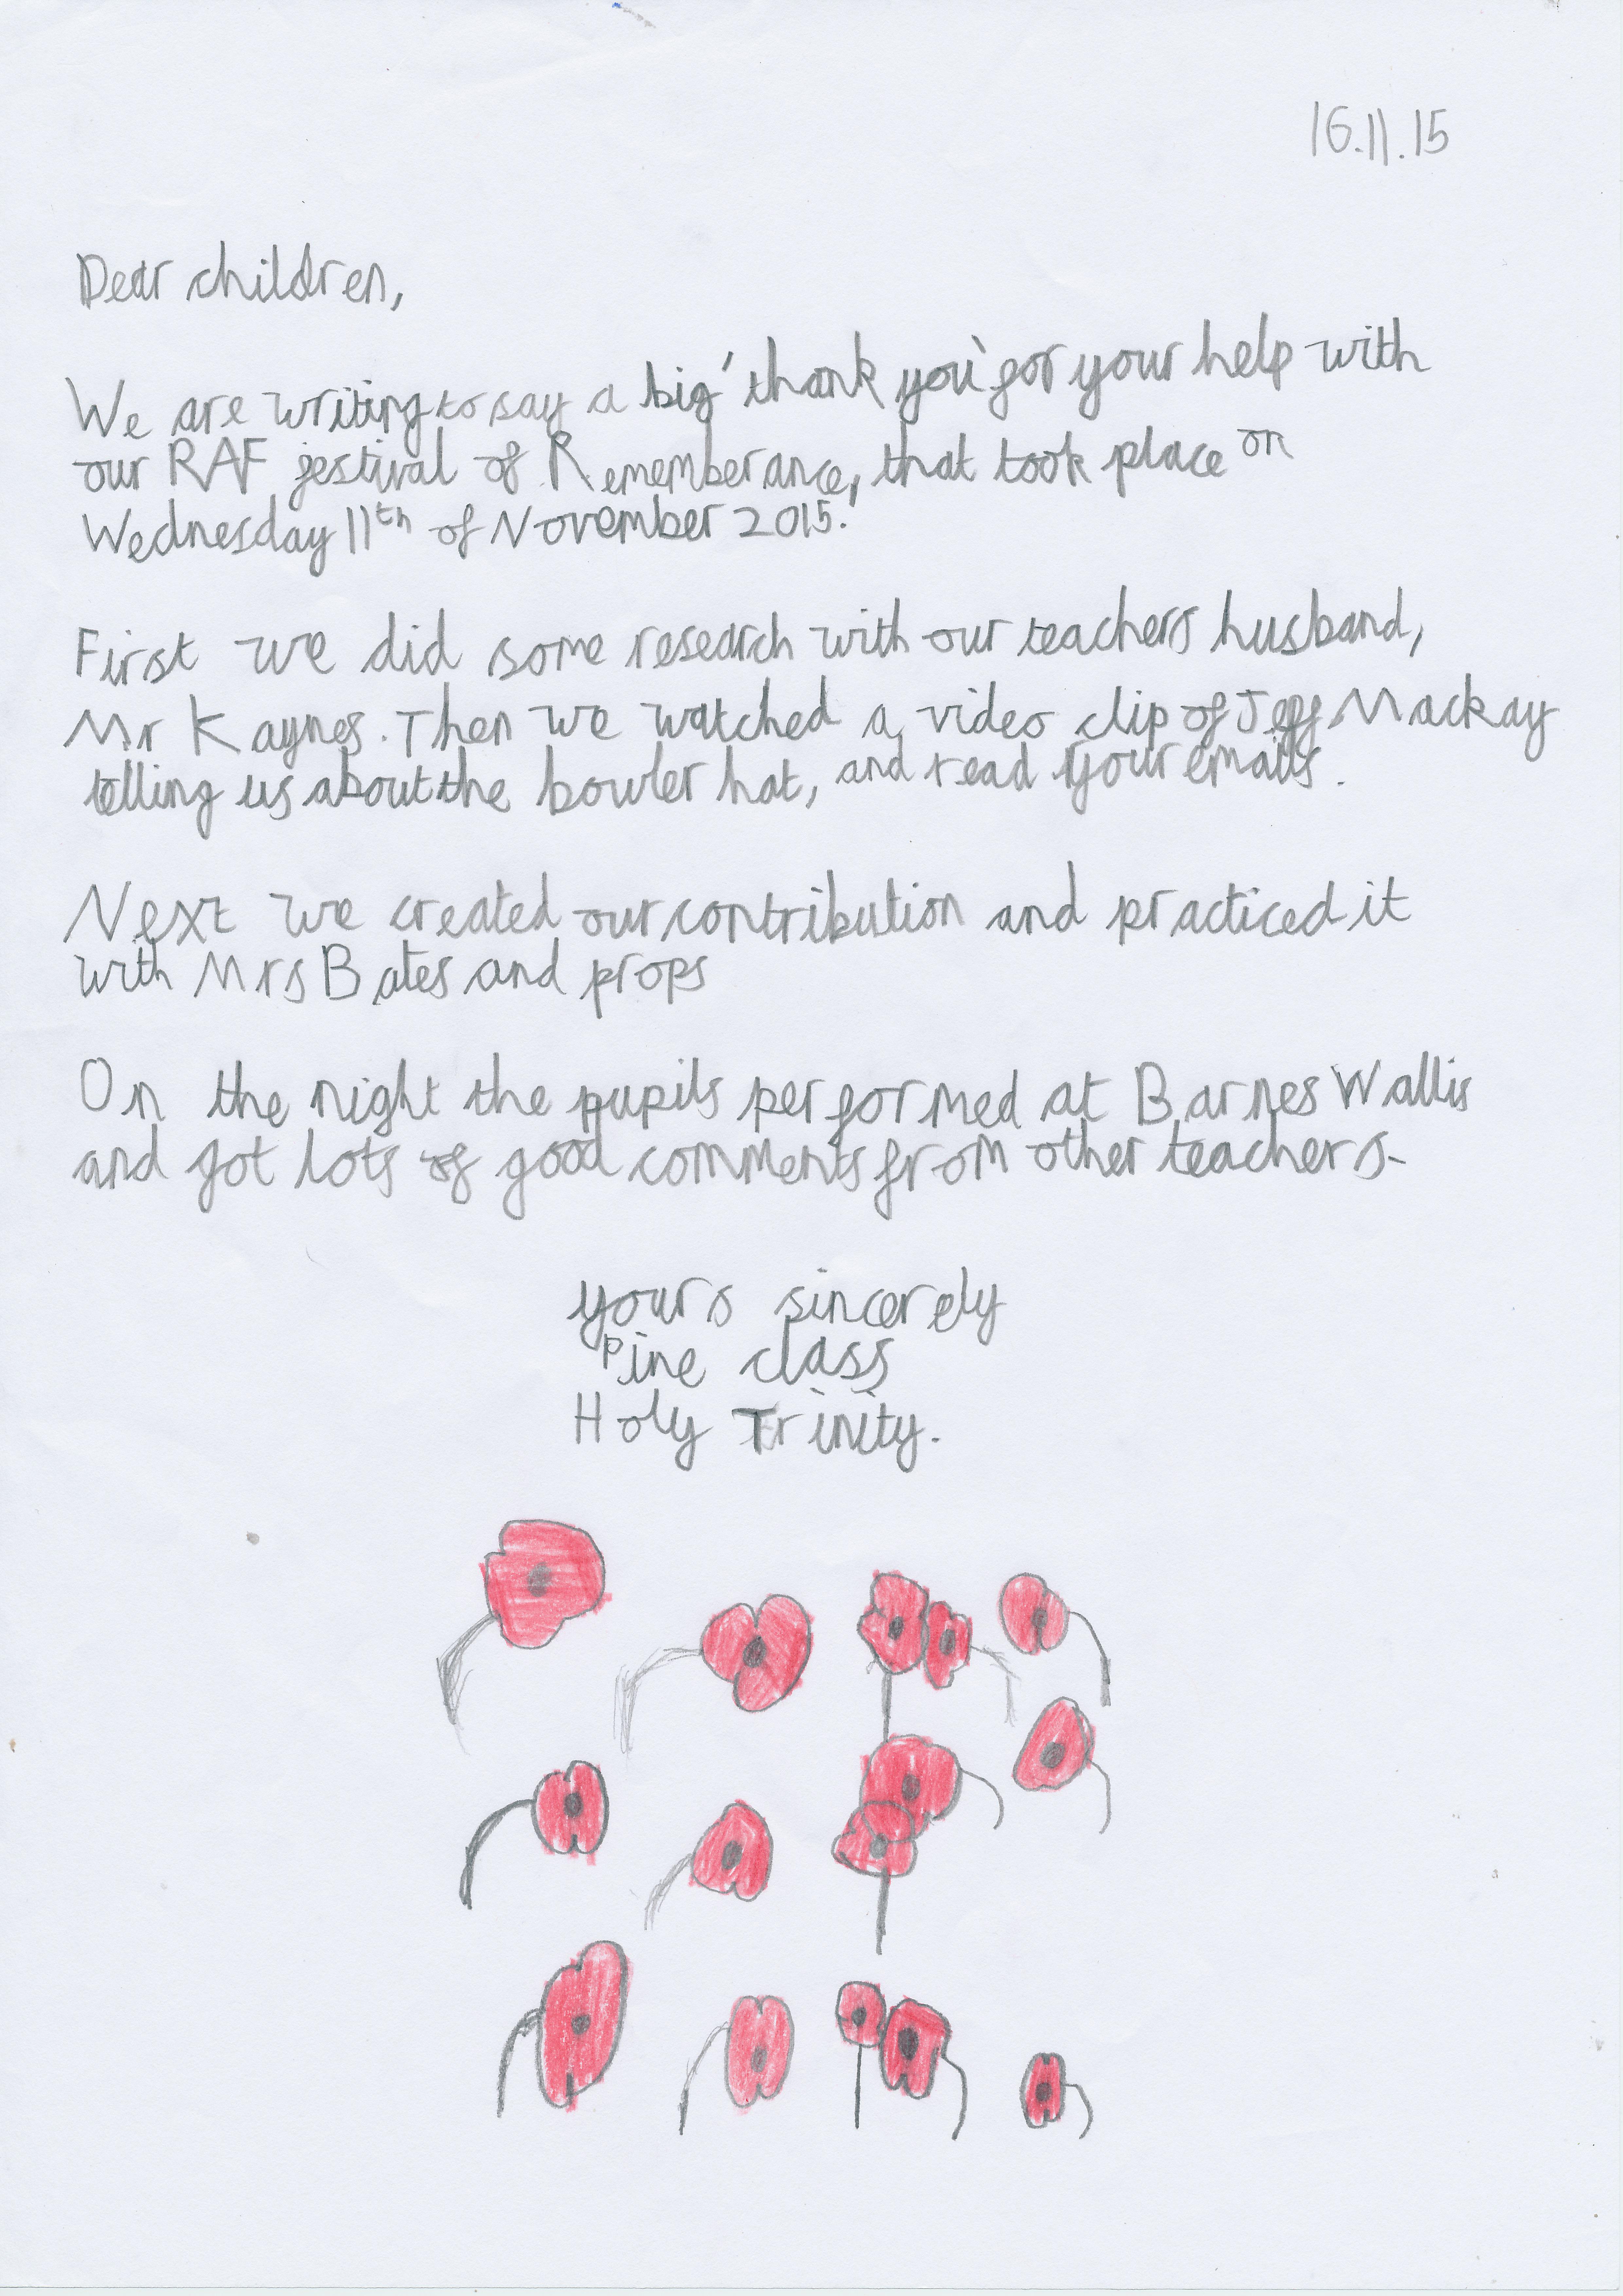 16.11.15
Dear children,
We are writing to say a big 'thank you' for your help with
our RAF festival of Rememberance, that took place on
Wednesday 11th of November 2015.
First we did some research with our teachers husband,
Mr Kaynes. Then we watched a video clip of Jeff Mackay
telling us about the bowler hat, and read your emails.
Next we created our contribution and practiced it
with Mrs Bates and props
On the night the pupils performed at Barnes Wallis
and got lots of good comments from other teachers.
yours sincerely
Pine class
Holy Trinity.